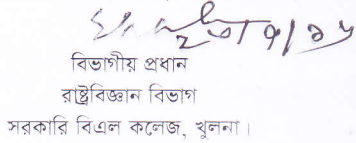 বিভাগীয় প্রধান
রাষ্ট্রবিজ্ঞান বিভাগ
সরকারি বিএল কলেজ, খুলনা।